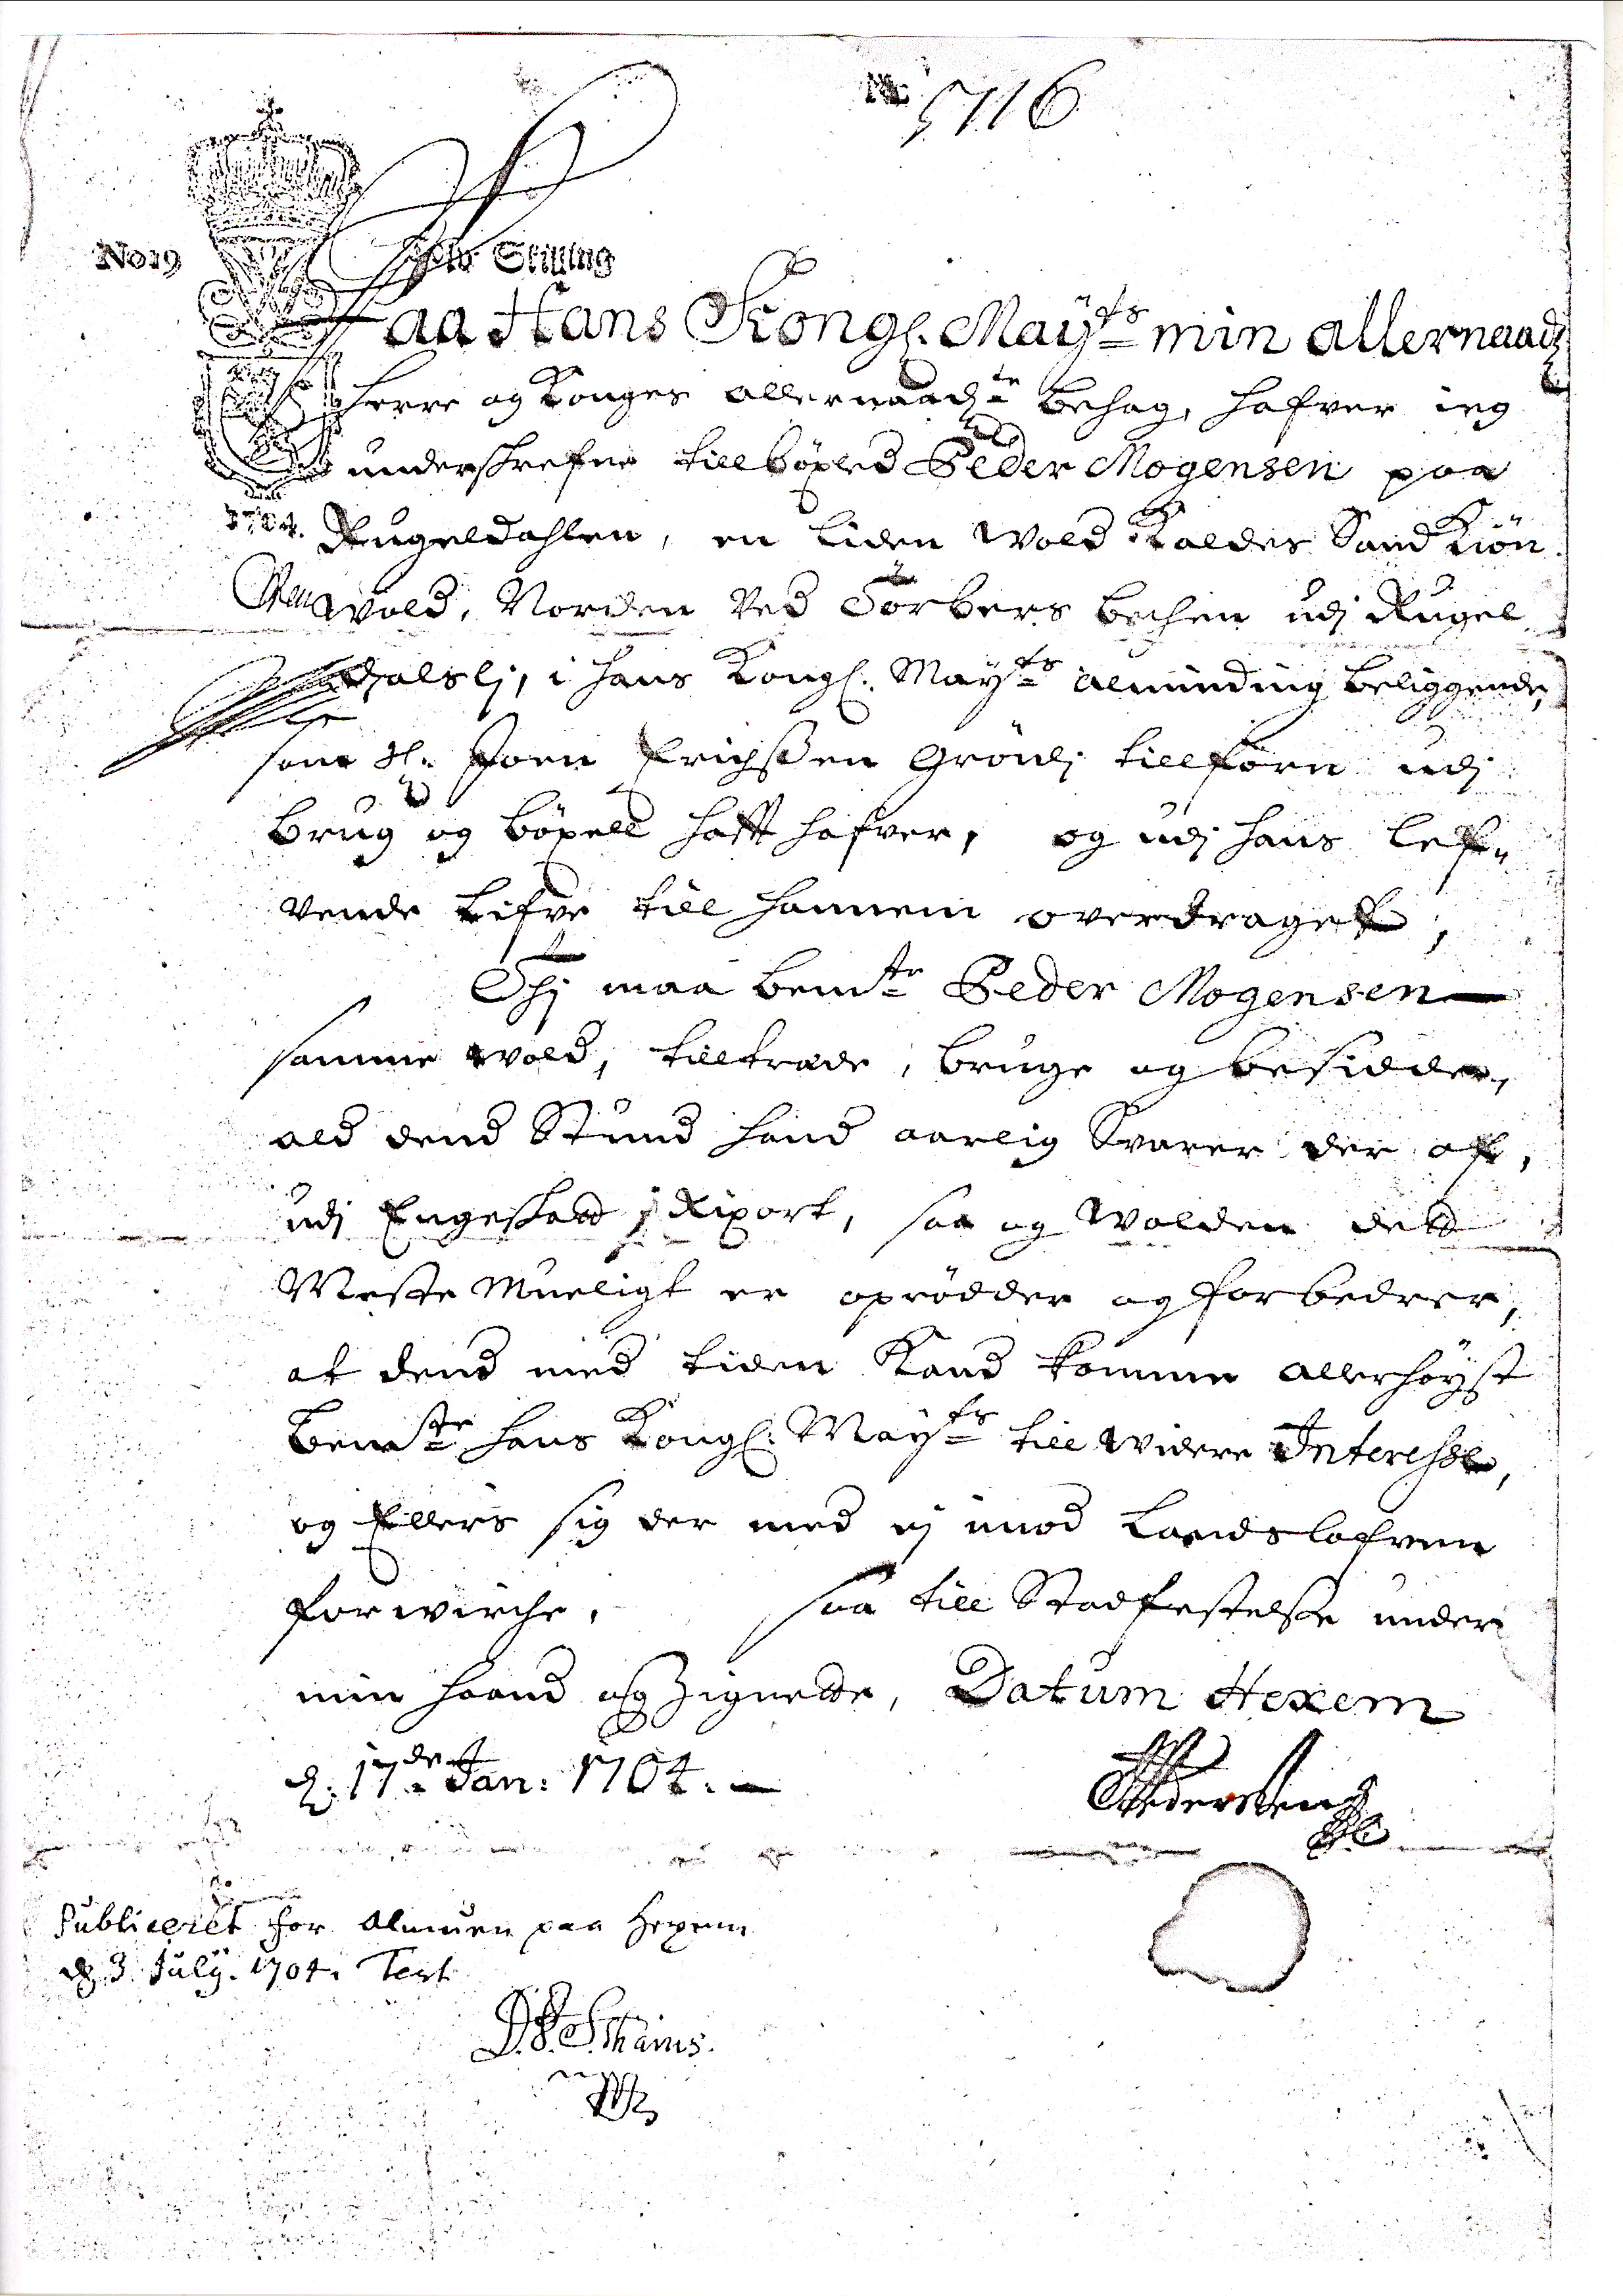 No 5716
No 19
Stilling
1704.
Paa Hans Kongl. Mayts min allernaadg
Herre og Konges allernaadgte behag, hafver ieg
underskrefne tillböxled Peder Mogensen paa
Rugeldahlen, en liden Wold Kaldes Sand Kiön
Wold, Norden Ved Törbers bechen udj Rugel
dalslj, i hans Kongl. Mayts alminding beliggende,
som Sl. Joen Erichssen Grönlj tillforn udj
brug og böxell hafft hafver, og udj hans lef„
vende lifve till hannem overdraget;
Thj maa bemte Peder Mogensen
samme wold, tilltræde, bruge og besidde,
ald dend Stund hand aarlig Svarer der af,
udj Engeskatt j Rixort, saa og Wolden ded
Meste Mueligt er oprödder og forbedrer,
at dend med tiden Kand komme allerhöyst
bemte hans Kongl: Mayts till widere Interesse,
og Ellers sig der med ej imod Landslofven
forwirche, saa till Stadfestelse under
min haand og Zignette, Datum Hexem
d: 17de Jan: 1704.
Publiceret for Almuen paa Hexem
d 3 July. 1704. Test